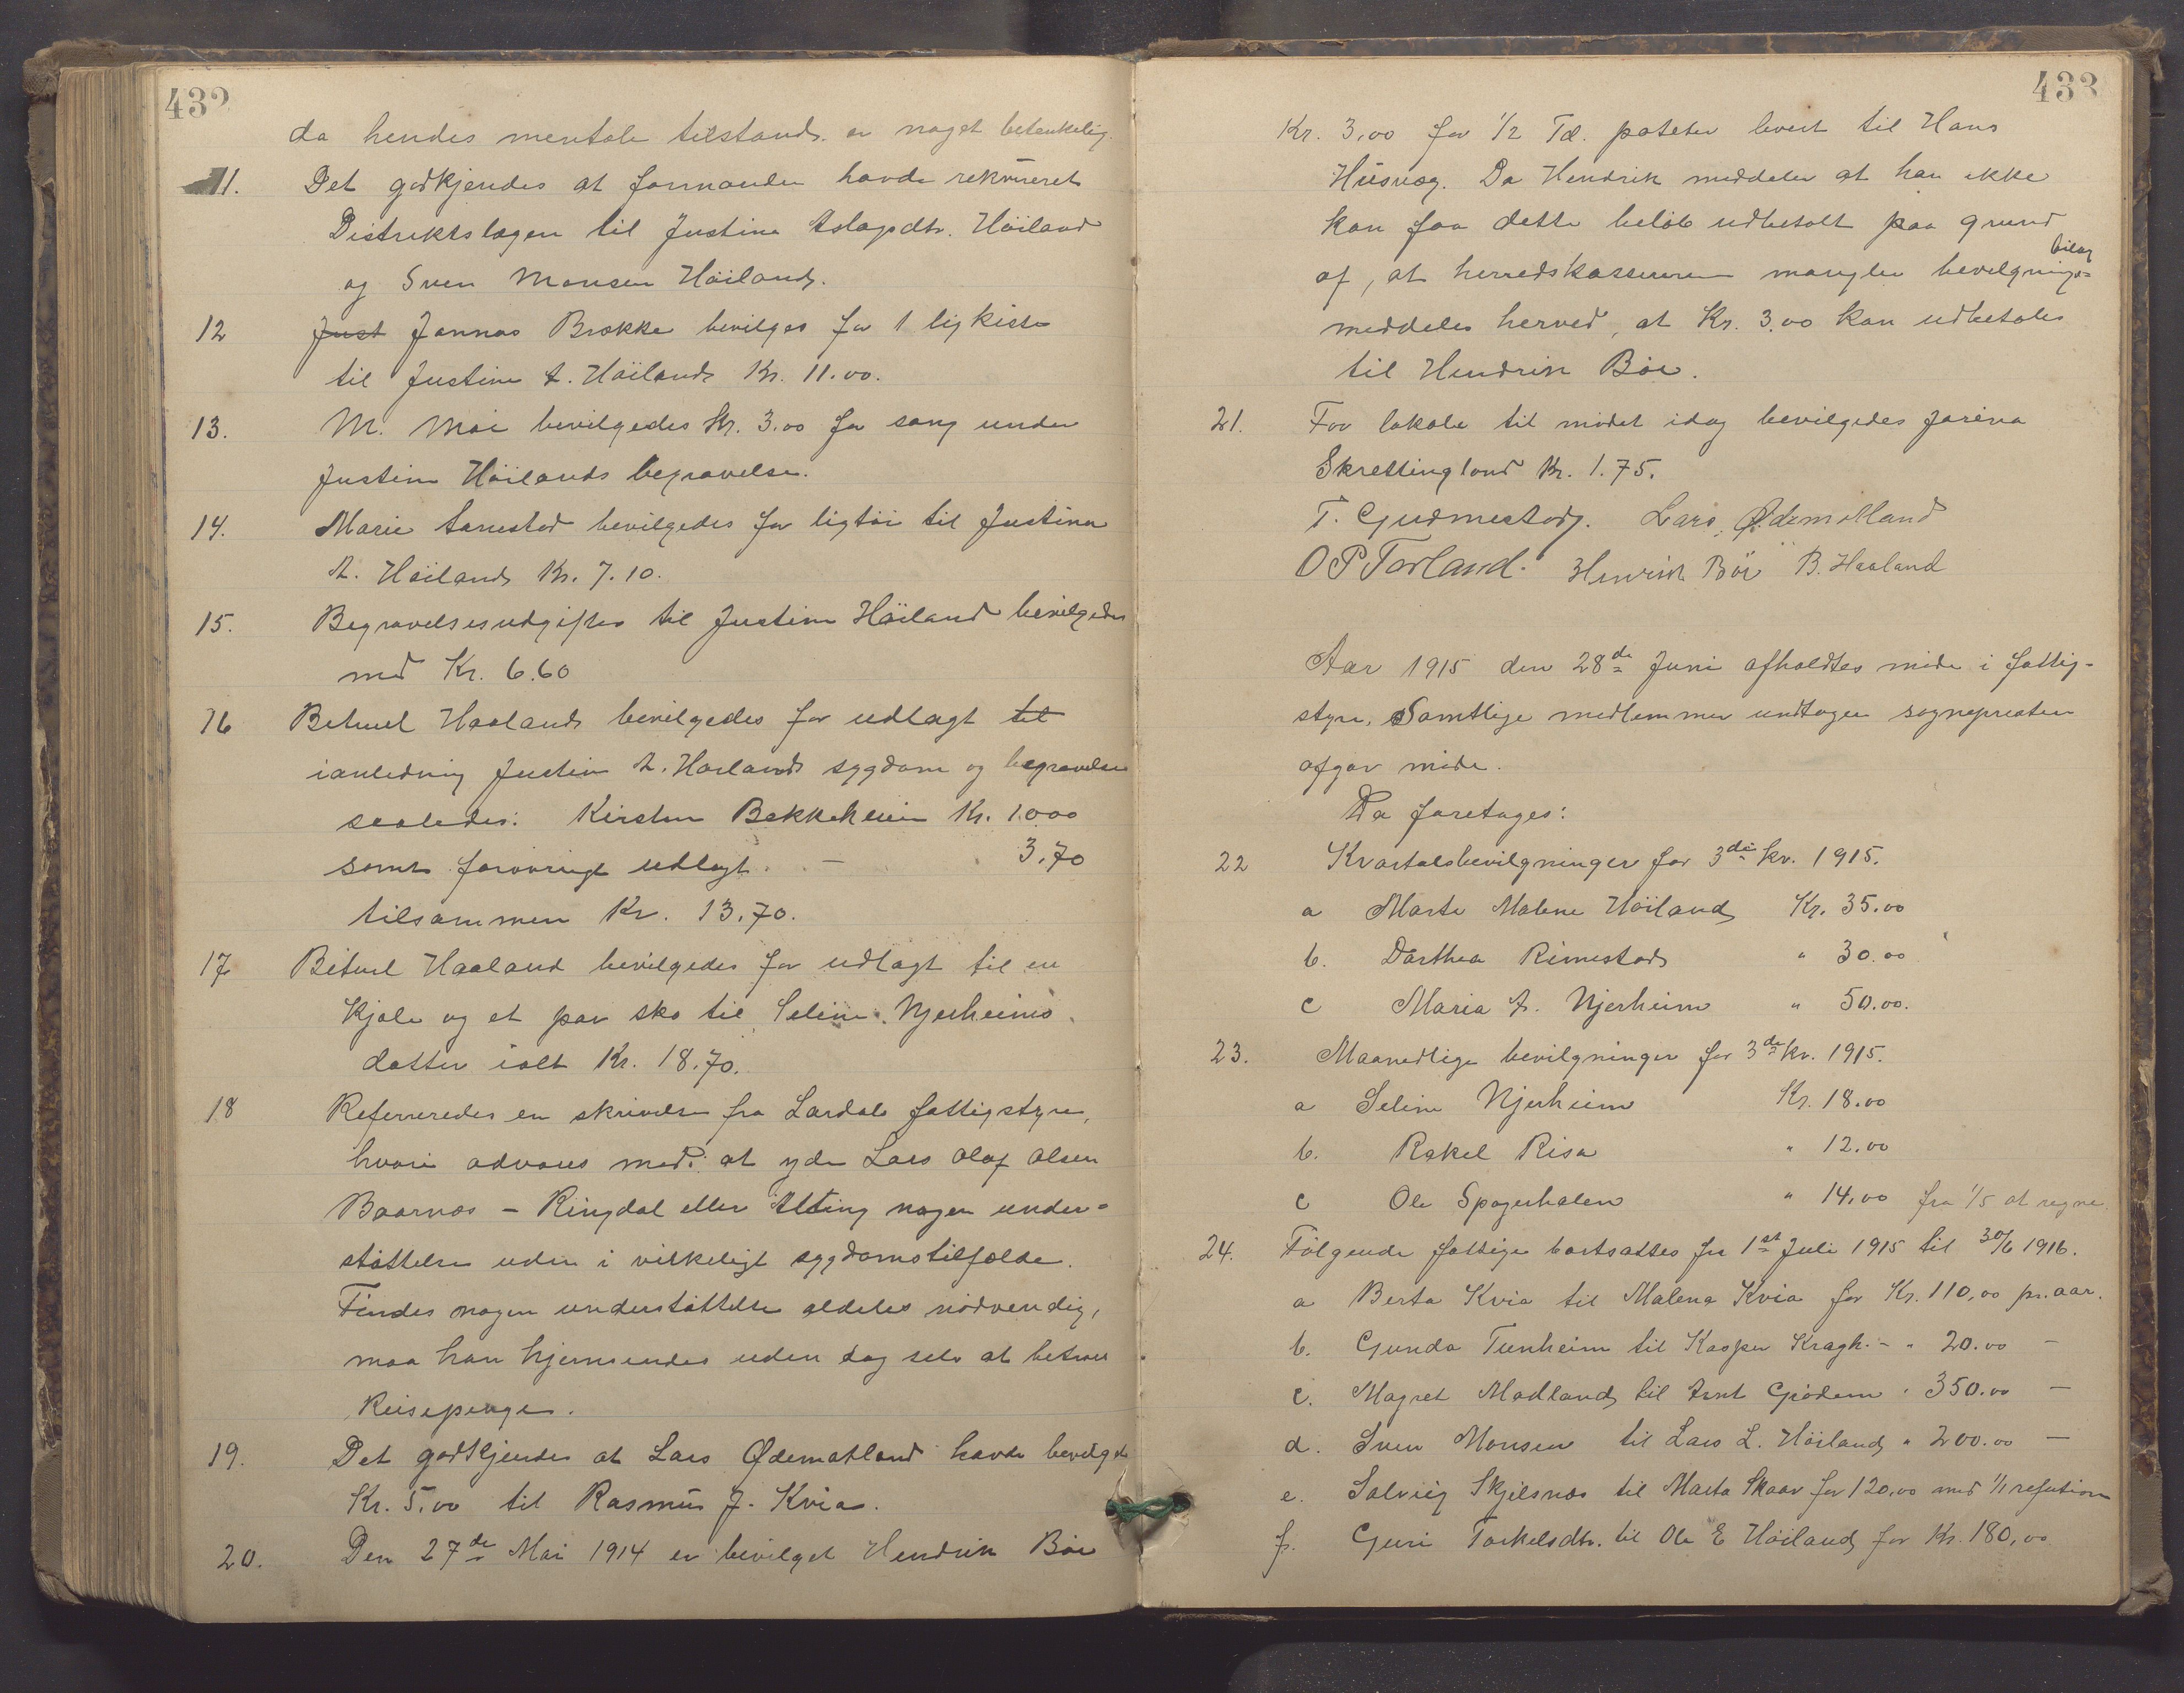 432
da hendes mentale tilstand er noget betenkelig.
11. Det godkjendes at formanden havde rekvireret
Distriktslægen til Justine Aslagsdtr. Höiland
og Sven Monsen Höiland.
12 Just Jonnas Brække bevilges for 1 ligkiste
til Justine A. Höiland Kr. 11.00.
13. M. Moi bevilgedes Kr. 3.00 for sang under
Justine Höilands begravelse.
14. Marie Aanestad bevilgedes for ligtöi til Justina
A. Höiland Kr. 7.10.
15. Begravelsesudgifter til Justine Höiland bevilgedes
med Kr. 6.60
16 Betuel Haaland bevilgedes for udlagt til
ianledning Justine A. Hoilands sygdom og begravelse
saaledes: Kirsten Bakkeheim Kr. 10.00
samt forövrigt udlagt — 3,70
tilsammen Kr. 13,70.
17 Betuel Haaland bevilgedes for udlagt til en
kjole og et par sko til Seline Njerheims
datter ialt Kr. 18.70.
18 Refereredes en skrivelse fra Lardals fattigstyre,
hvori advares mod at yde Lars Olaf Olsen
Baarnes - Ringdal eller Alting nogen under=
stöttelse uden i virkeligt sygdomstilfælde.
Findes nogen understöttelse aldeles nödvendig,
maa han hjemsendes uden dog selv at betroes
Reisepenge.
19. Det godkjendes at Lars Ødemotland havde bevilget
Kr. 5.00 til Rasmus J. Kvia.
20. Den 27de Mai 1914 er bevilget Hendrik Böe
433
Kr. 3,00 for 1/2 Td. poteter levert til Hans
Husvæg. Da Hendrik meddeler at han ikke
kan faa dette belöb udbetalt paa grund
af, at herredskassereren mangler bevilgnings= bilag
meddeles herved, at Kr. 3.00 kan udbetales
til Hendrik Böe.
21. For lokale til mödet idag bevilgedes Jorina
Skrettingland Kr. 1.75.
T. Gudmestad. Lars Ødemotland
O P Torland. Henrik Böe B. Haaland
Aar 1915 den 28de Juni afholdtes möde i fattig-
styre, Samtlige medlemmer undtagen sognepresten
afgav möde.
Da foretages:
22 Kvartalsbevilgninger for 3die kv. 1915.
a Marte Malene Höiland Kr. 35.00
b. Dorthea Rimestad " 30.00
c Maria A. Njerheim " 50.00.
23. Maanedlige bevilgninger for 3de kv. 1915.
a Seline Njerheim Kr. 18.00
b. Rakel Risa " 12.00
c Ole Spagerhalen " 14,00 fra 1/5 at regne.
24. Fölgende fattige bortsattes fra 1st Juli 1915 til 30/6 1916.
a Berta Kvia til Malena Kvia for Kr. 110,00 pr. aar.
b. Gunda Tunheim til Kasper Kragh. - " 20.00 —
c. Magret Madland til Arnt Gjödem " 350.00 —
d. Sven Monsen til Lars L. Höiland " 200.00 —
e. Solveig Skjelsnes til Marta Skaar for 120,00 med 1/1 refution
f. Guri Torkelsdtr. til Ole E Höiland for Kr. 180,00